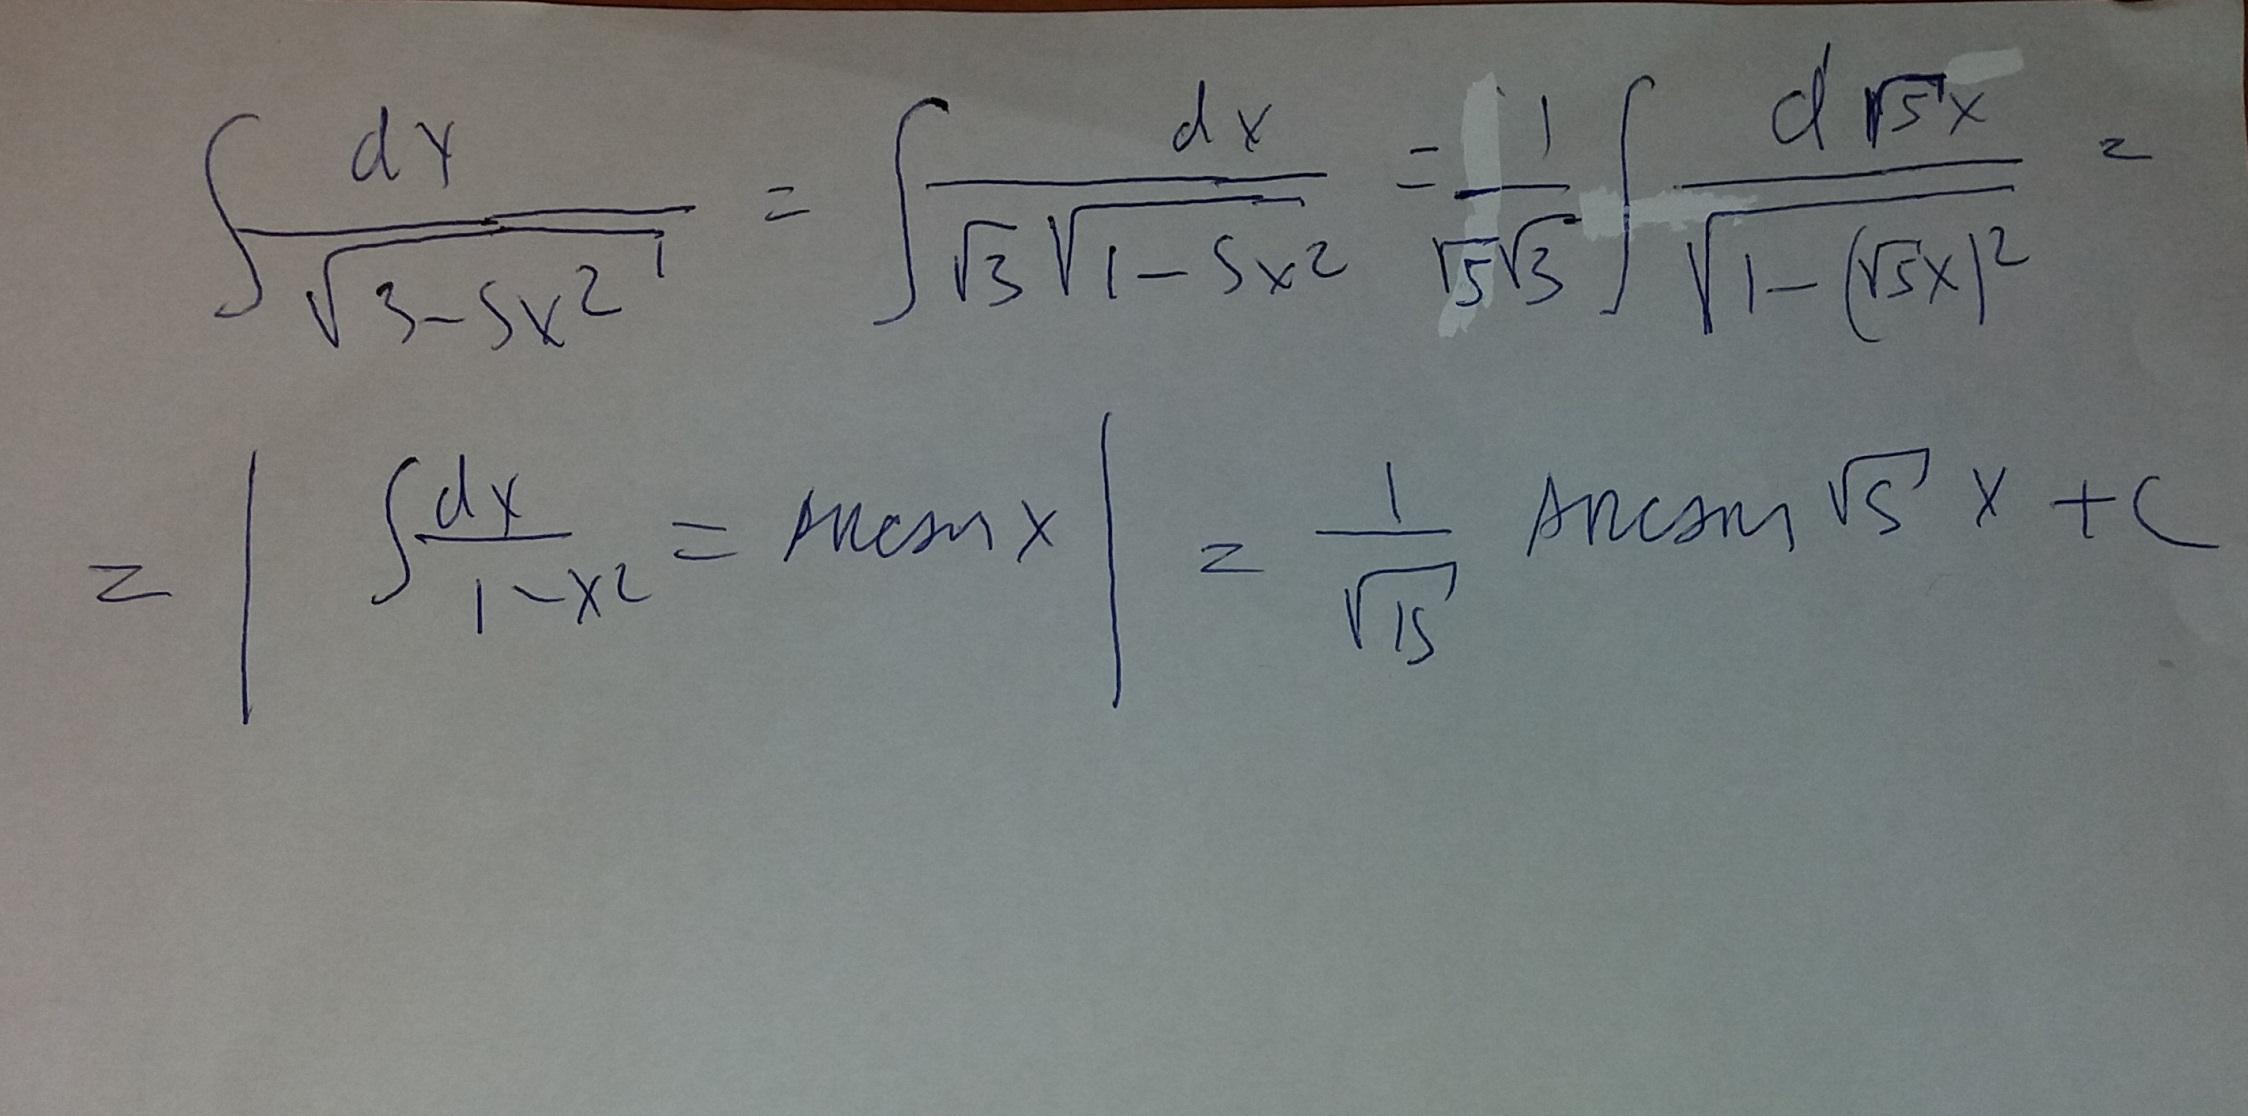 ∫ dx/√(3-5x²) = ∫ dx/(√3 √(1-5x²)) = 1/(√5 √3) ∫ d√5x/√(1-(√5x)²) =
= | ∫ dx/(1-x²) = arcsin x | = 1/√15 arcsin √5 x + C